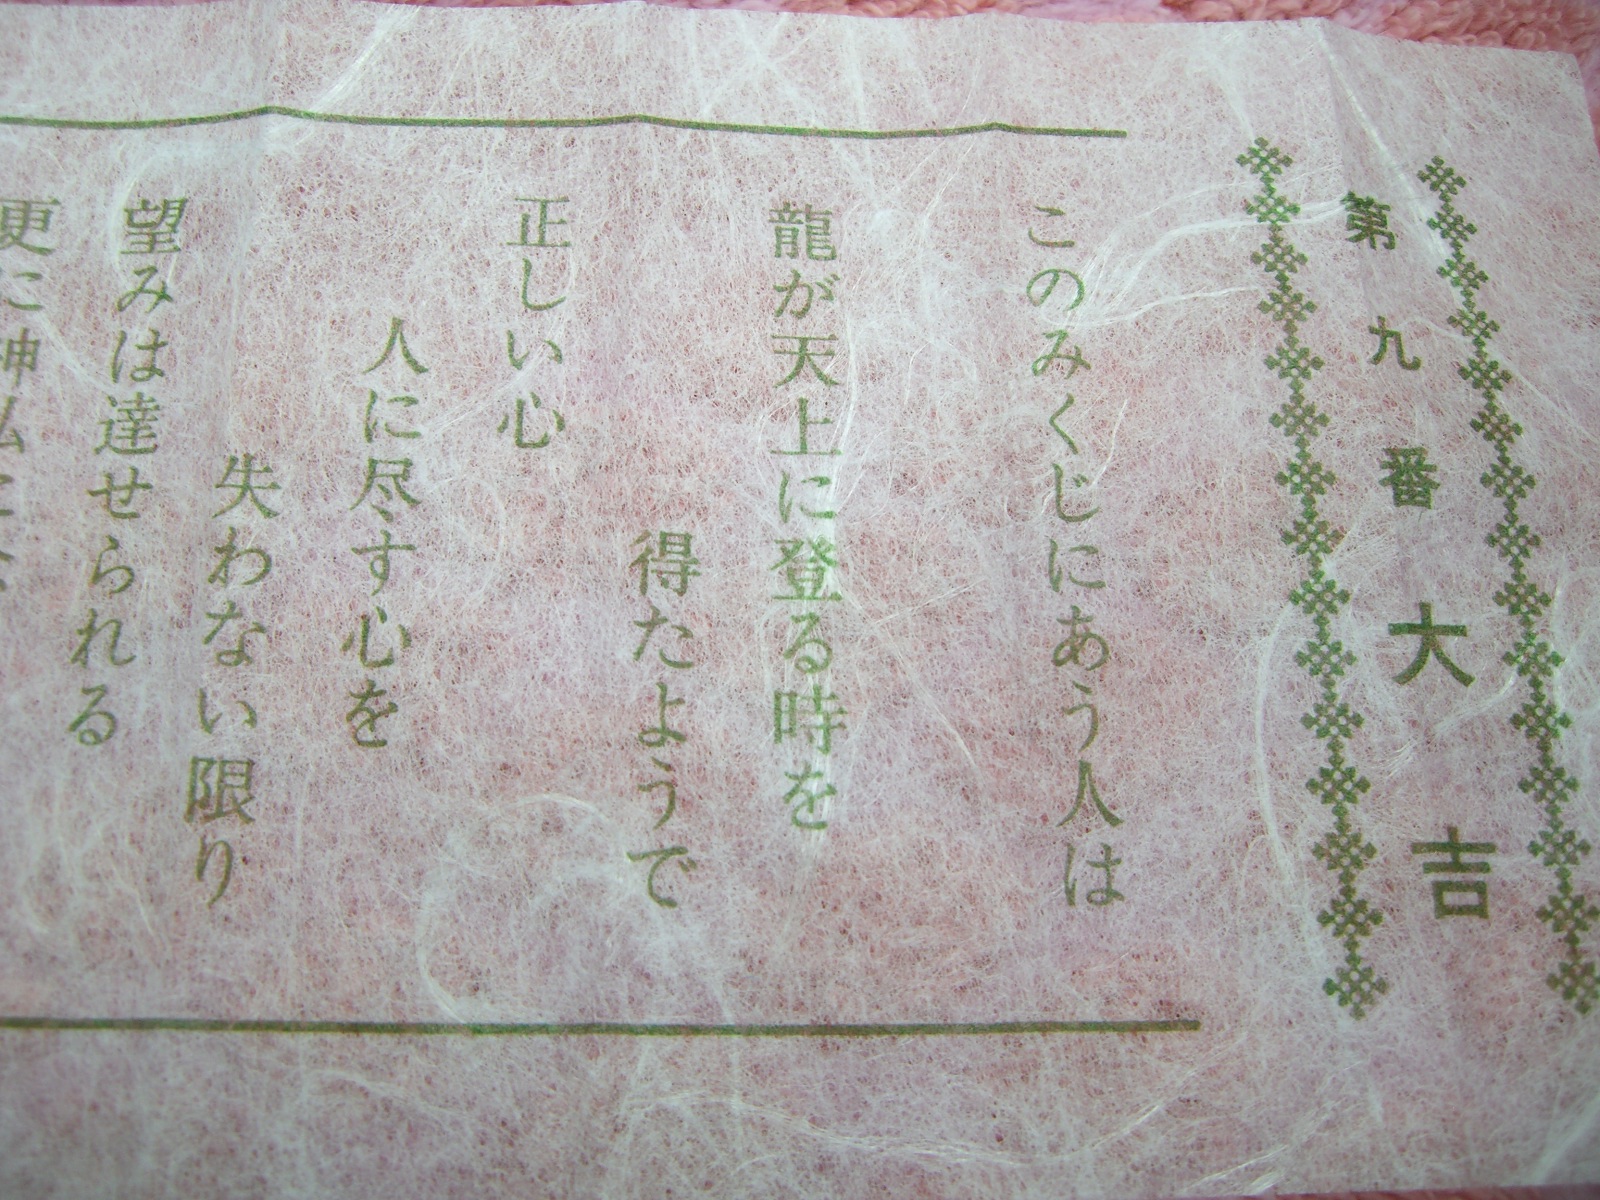 第九番 大吉
このみくじにあう人は
龍が天上に登る時を
得たようで
正しい心
人に尽す心を
失わない限り
望みは達せられる
更に神仏に